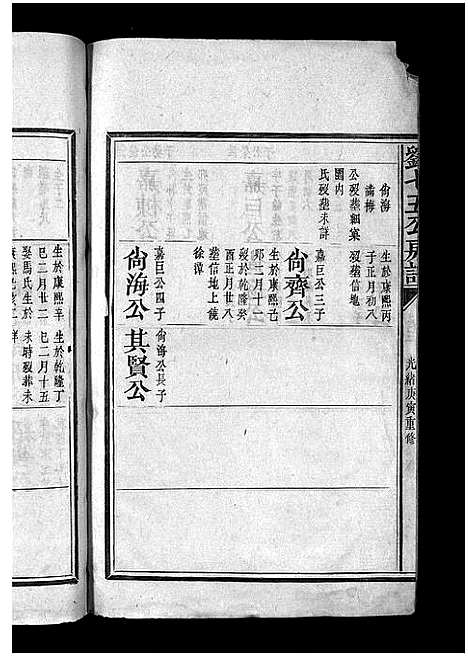 劉七五公房譜
光緒庚寅重修
尙海
公歿塟細窠
園內
氏歿塟未詳
生於康熙丙
子正月初八
歿塟信地
尙齊公
嘉巨公三子
生於康熙己
卯二月十一
歿於乾隆癸
酉正月廿八
塟信地上鏡
徐潭
嘉巨公四子
尙海公
尙海公長子
其賢公
生於康熙辛
巳二月廿二
娶馬氏生於
生於乾隆丁
巳二月十五
未時歿塟未